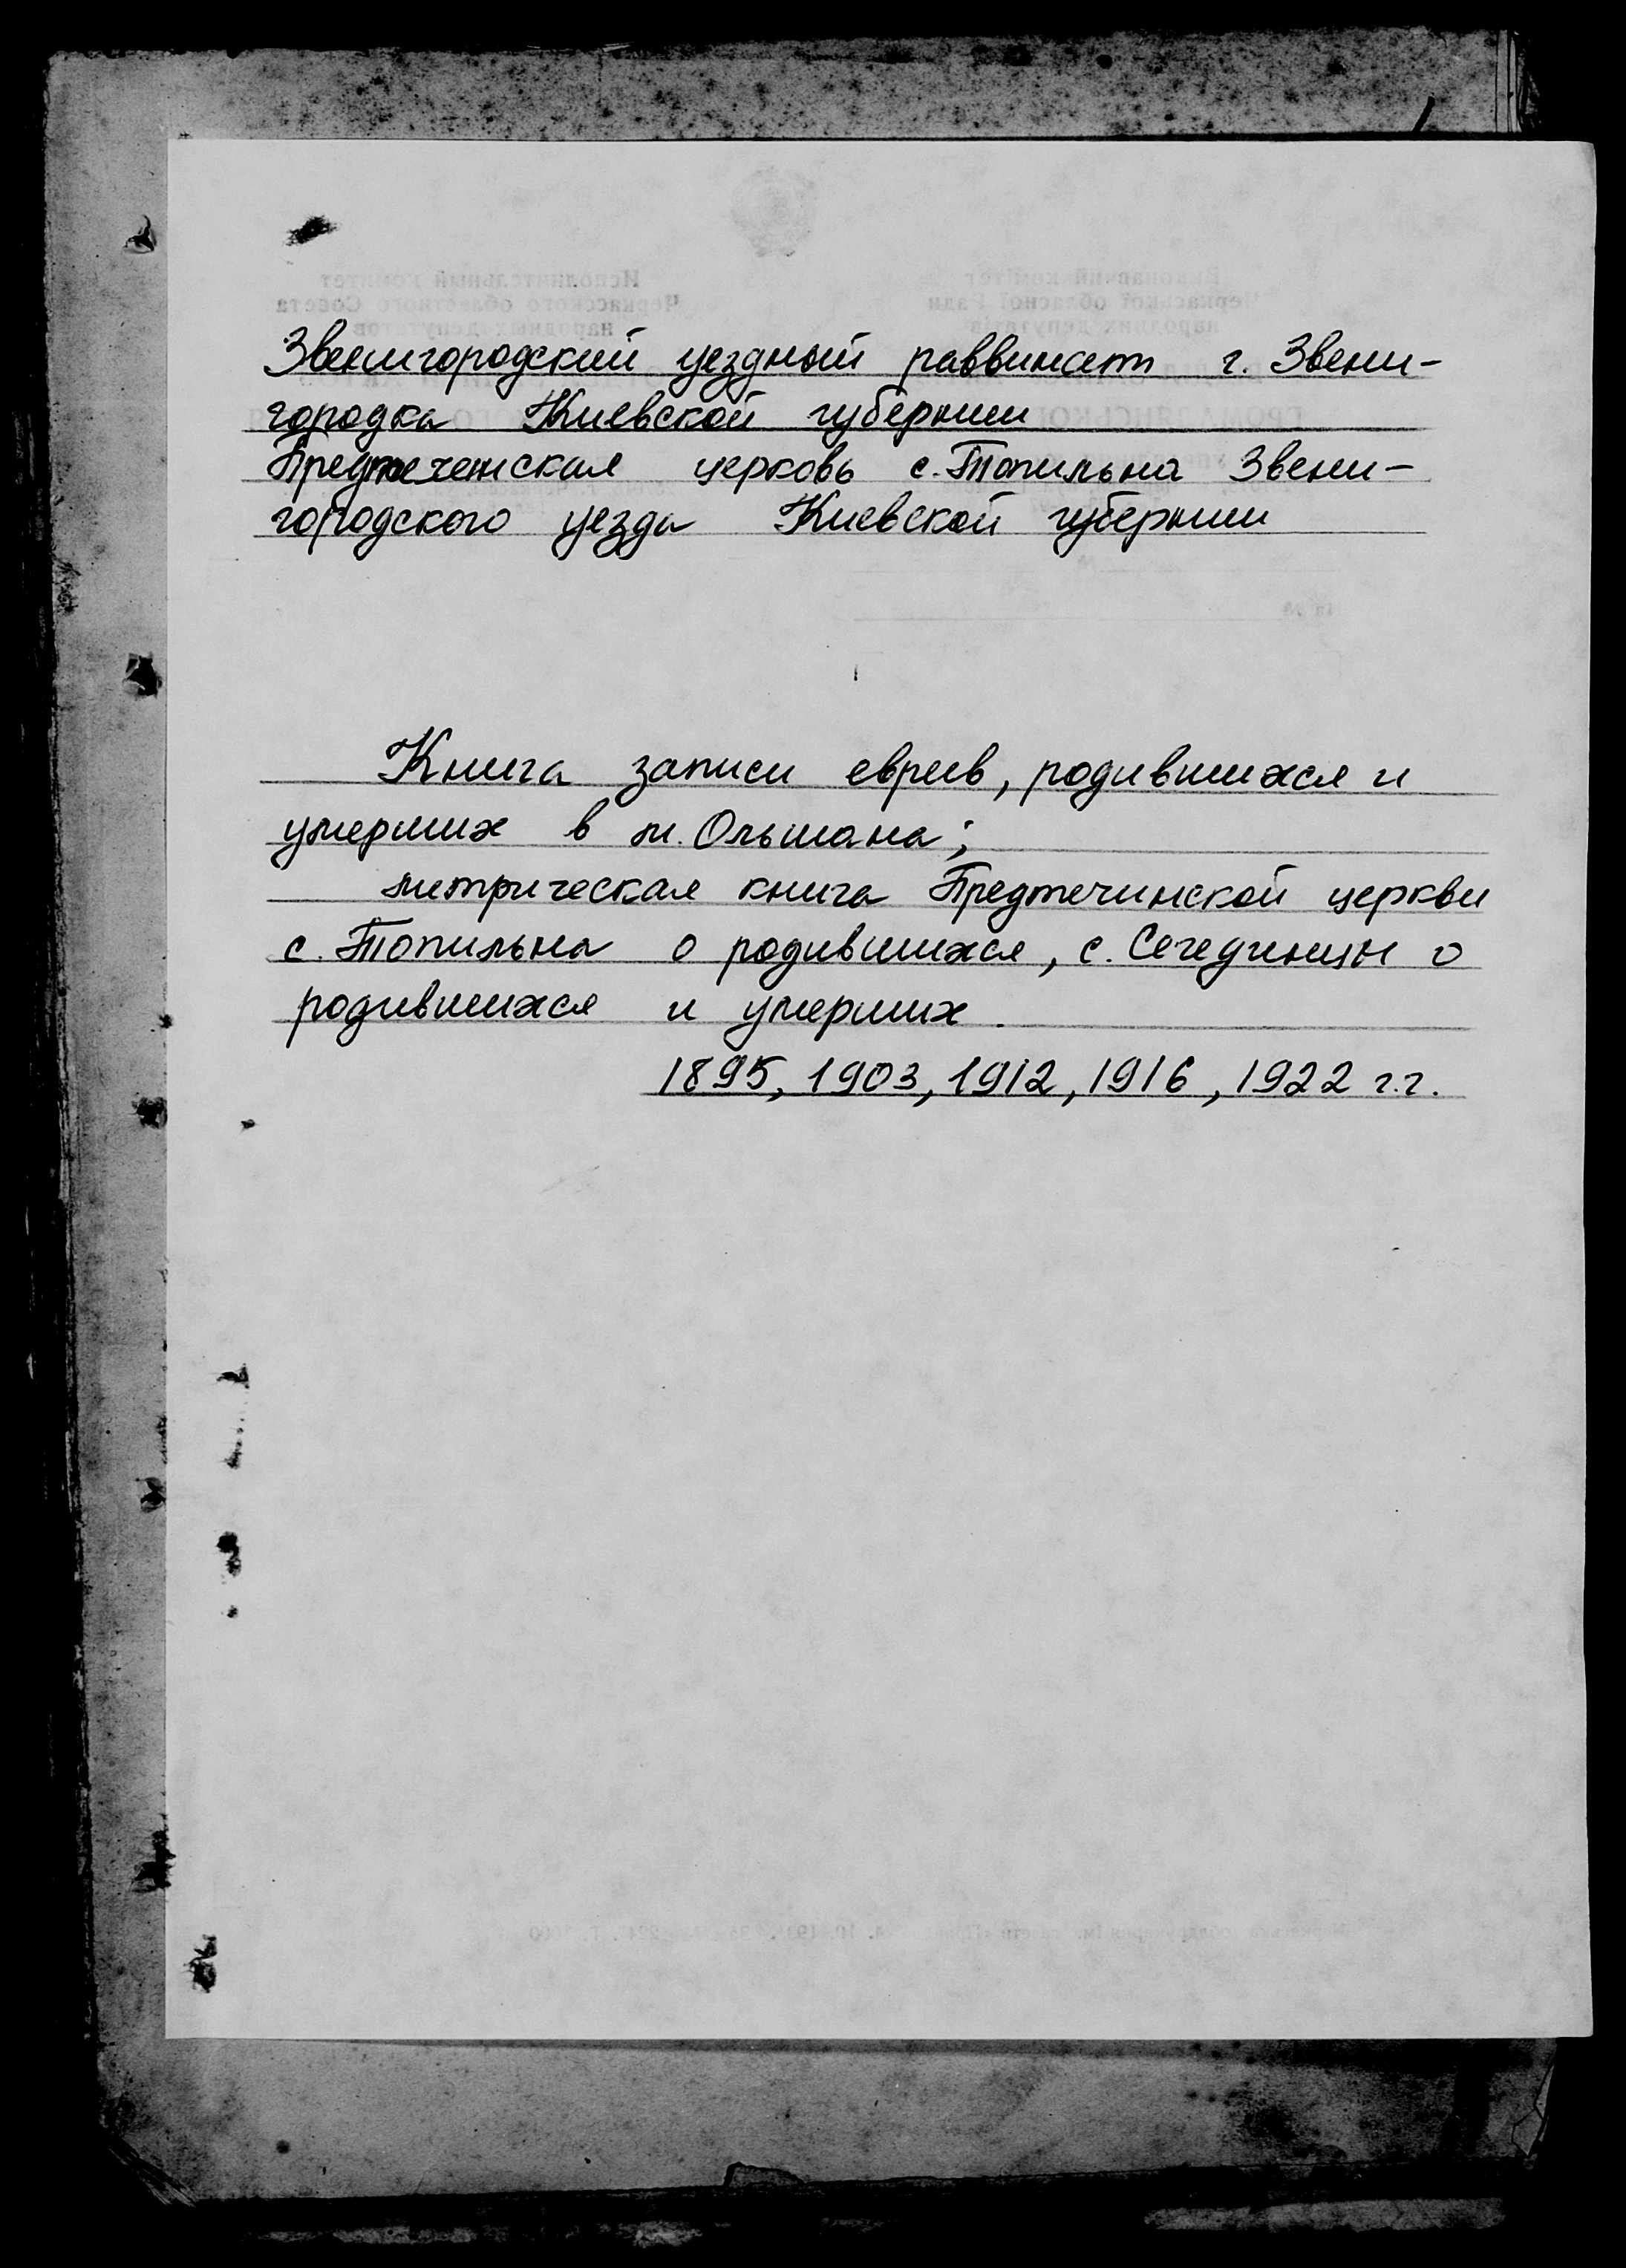 Звенигородский уездный раввинат г. Звени-
городка Киевской губернии
Предтеченская церковь с. Топильна Звени-
городского уезда Киевской губернии
Книга записи евреев, родившихся и
умерших в м. Ольшана;
метрическая книга Предтечинской церкви
с. Топильна о родившихся, с. Сегединцы о
родившихся и умерших.
1895, 1903, 1912, 1916, 1922 г.г.